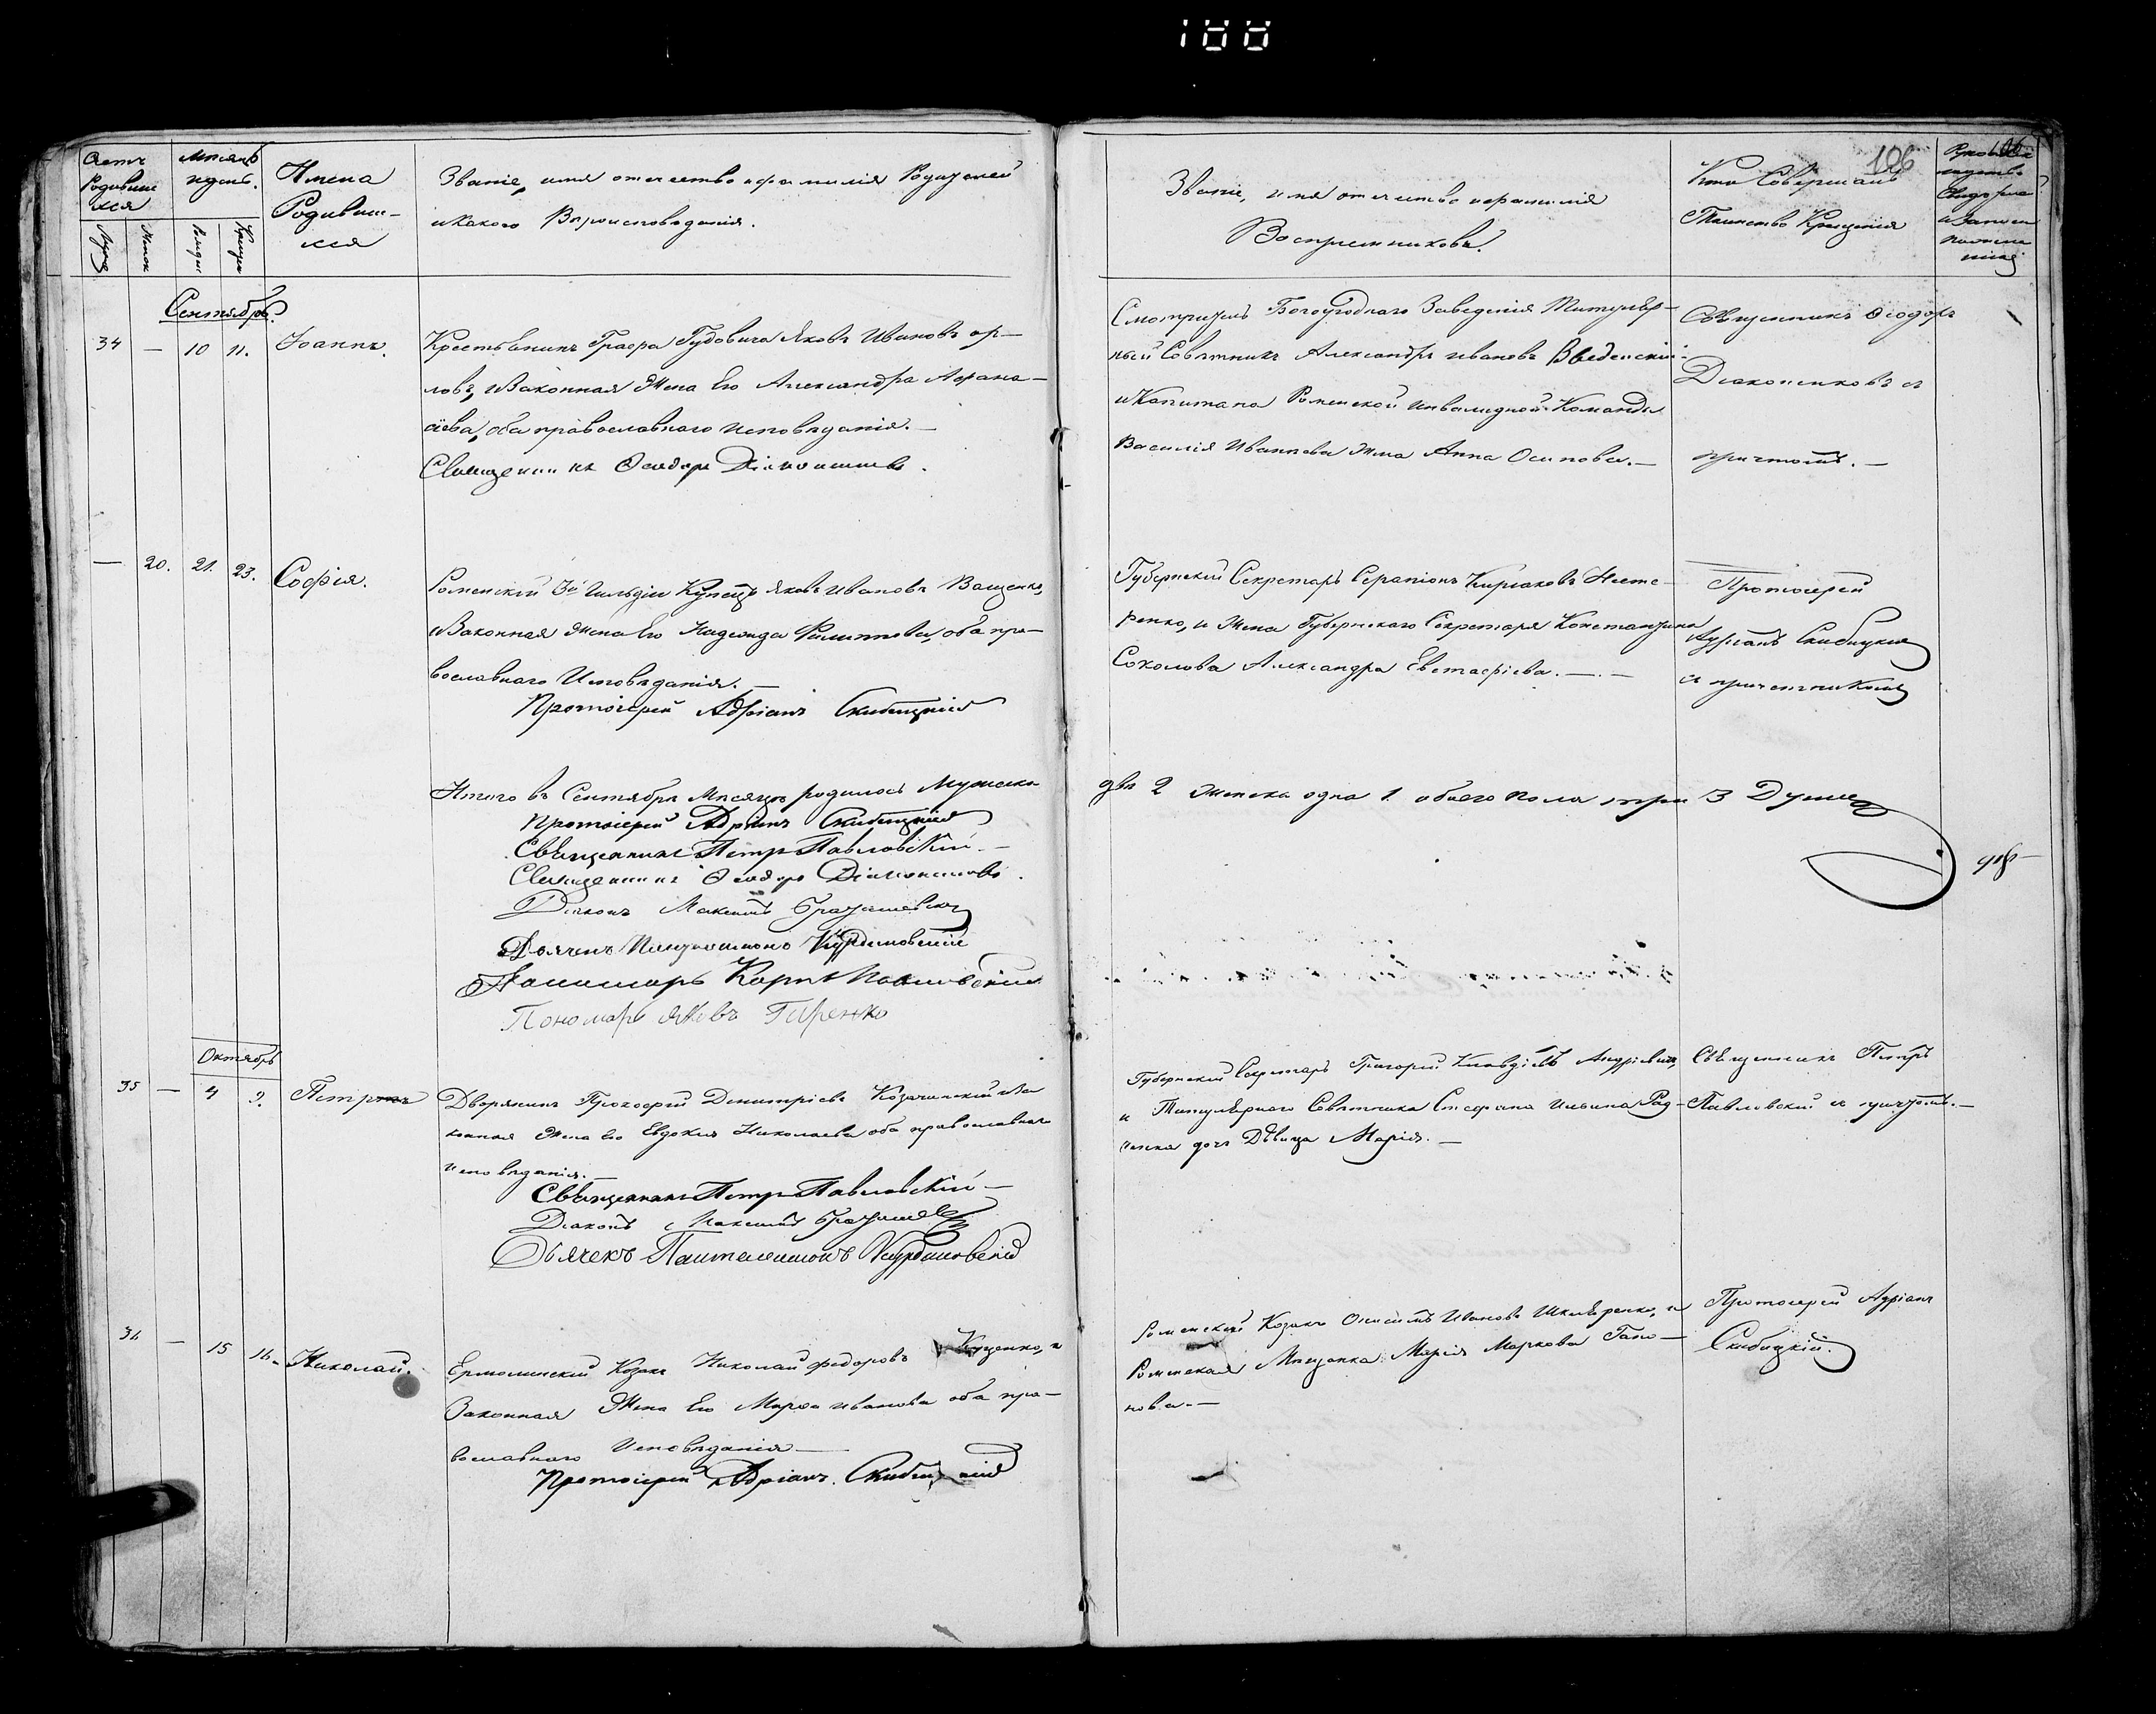 188
106
106
Счетъ Родившихся
Мѣсяцъ и день.
Имена Родившихся
Званіе, имя отчество и фамилія Родителей
и какого Вѣроисповѣданія.
Званіе, имя отчество и фамилія
Воспріемниковъ.
Кто Совершалъ
Таинство Крещенія
Сентябрь.
34 — 10 11.
Іоаннъ.
Крестьянинъ Графа Гудовича Яковъ Ивановъ Ор-
ловъ, и Законная Жена Его Александра Афана-
сіева, оба православнаго исповѣданія. —
Священникъ Ѳеодоръ Діаконенковъ.
Смотритель Богоугоднаго Заведенія Титуляр-
ный Совѣтникъ Александръ Ивановъ Введенскій
и Капитана Роменской инвалидной Команды
Василія Иванова Жена Анна Осипова. —
Священникъ Ѳеодоръ
Діаконенковъ съ
причтомъ. —
— 20. 21. 23.
Софія.
Роменскій 3й Гильдіи Купецъ Яковъ Ивановъ Ващенко,
и Законная Жена Его Надежда Филиппова, оба пра-
вославнаго Исповѣданія. —
Протоіерей Адріанъ Скибицкій
Губернскій Секретарь Серапіонъ Киріаковъ Несте-
ренко, и Жена Губернскаго Секретаря Константина
Соколова Александра Евстафіева. —
Протоіерей
Адріанъ Скибицкій
съ причетникомъ
Итого въ Сентябрѣ Мѣсяцѣ родилось Мужска
два 2 женска одна 1 обоего пола три 3 Души
Протоіерей Адріанъ Скибицкій
Священникъ Петръ Павловскій. —
Священникъ Ѳеодоръ Діаконенковъ.
Діаконъ Максимъ
Дьячекъ Пантелеимонъ
Пономарь Карпъ
Пономарь Яковъ
Октябрь
35 — 4 9.
Петръ
Дворянинъ Прокофій Димитріевъ Козачинскій и За-
конная Жена Его Евдокія Николаева оба православнаго
исповѣданія. —
Священникъ Петръ Павловскій —
Діаконъ Максимъ
Дьячекъ Пантелеимонъ
Губернскій Секретарь Григорій
и Титулярнаго Совѣтника Стефана Ильина Рад-
ченка дочь Дѣвица Марія. —
Священникъ Петръ
Павловскій съ причтомъ. —
36 — 15 16.
Николай.
Ермолинскій Козакъ Николай Федоровъ Куценко, и
Законная Жена Его Марфа Иванова оба пра-
вославнаго Исповѣданія —
Протоіерей Адріанъ Скибицкій
Роменскій Козакъ Онисимъ Ивановъ Шкляренко, и
Роменская Мѣщанка Марія Маркова Гапо-
нова. —
Протоіерей Адріанъ
Скибицкій.